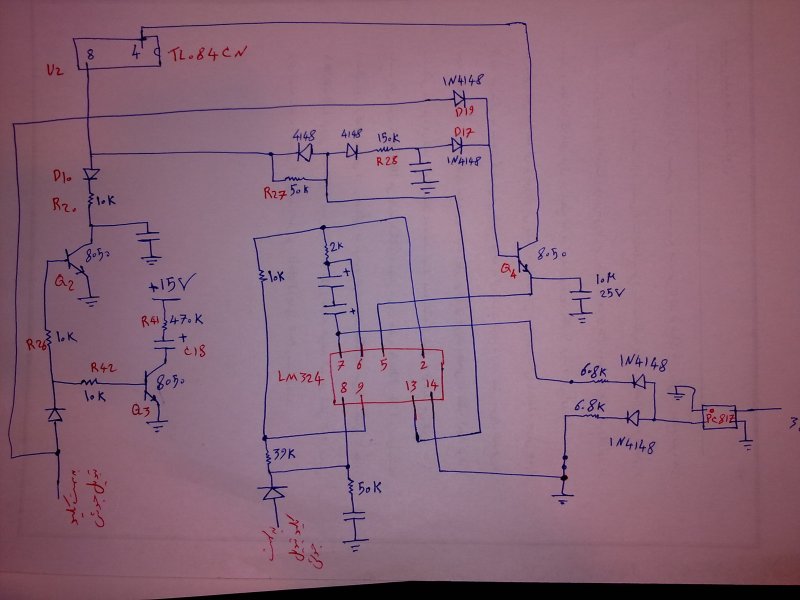 8 4 TL084CN
U2
1N4148
D19
4148 4148 150K D17
R28 1N4148
D10
R27 50K
R20 10K
8050
Q2
2K
10K
8050
Q4
+15V
10M
25V
R41 470K
+
+
+ C18
R26 10K
7 6 5 2
LM324
8 9 13 14
R42
10K
8050
Q3
6.8K 1N4148
6.8K
PC817
1N4148
39K
50K